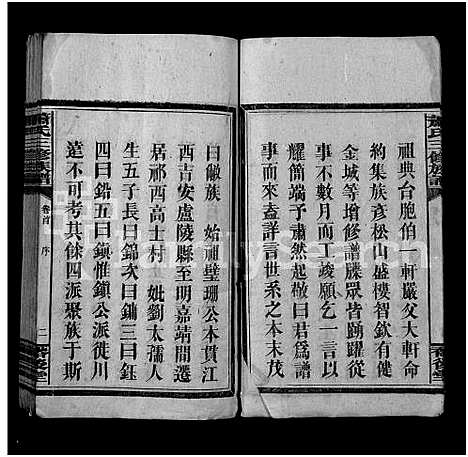 蕭氏三修族譜
祖典台胞伯一軒嚴父大軒命
約集族彥松山盛樓均欽有健
金城等搶修譜牒眾皆踴躍從
事不數月而工竣願乞一言以
耀簡端予肅然起敬曰君爲譜
事而來盍詳言世系之本末茂
曰徽族 始祖壁珊公本貫江
西吉安盧陵縣至明嘉靖間遷
居祁西高士村 妣劉太孺人
生五子長曰錦次曰鏞三曰鈺
四曰鉛五曰鎮惟鎮公派徙川
遠不可考其餘四派聚族于斯
氏三修族譜
卷首 序
二